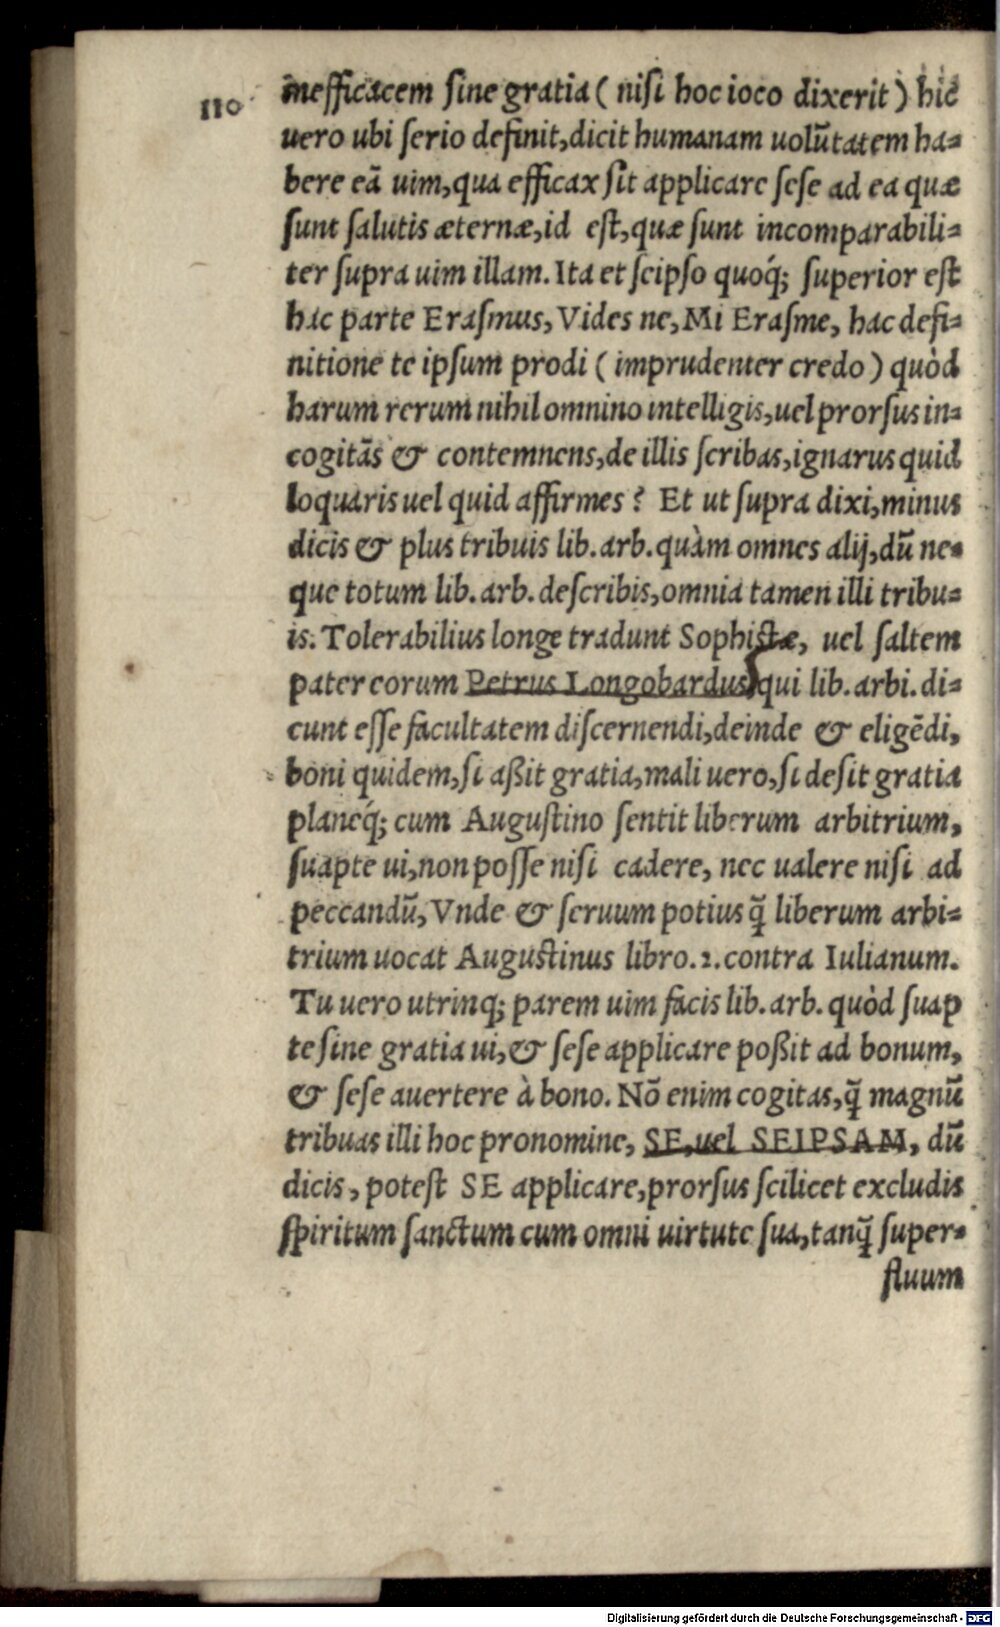 110
inefficacem ſine gratia ( niſi hoc ioco dixerit ) hic
uero ubi ſerio definit, dicit humanam uolūtatem ha⸗
bere eā uim, qua efficax ſit applicare ſeſe ad ea quæ
ſunt ſalutis æternæ, id eſt, quæ ſunt incomparabili⸗
ter ſupra uim illam. Ita et ſeipſo quoq́; ſuperior eſt
hac parte Eraſmus, Vides ne, Mi Eraſme, hac defi⸗
nitione te ipſum prodi ( imprudenter credo ) quòd
harum rerum nihil omnino intelligis, uel prorſus in⸗
cogitãs & contemnens, de illis ſcribas, ignarus quid
loquaris uel quid affirmes ? Et ut ſupra dixi, minus
dicis & plus tribuis lib. arb. quàm omnes alij, dū ne⸗
que totum lib. arb. deſcribis, omnia tamen illi tribu⸗
is. Tolerabilius longe tradunt Sophiſtæ, uel ſaltem
pater eorum Petrus Longobardus, qui lib. arbi. di⸗
cunt eſſe facultatem diſcernendi, deinde & eligēdi,
boni quidem, ſi aßit gratia, mali uero, ſi deſit gratia
planeq́; cum Auguſtino ſentit liberum arbitrium,
ſuapte ui, non poſſe niſi cadere, nec ualere niſi ad
peccandū, Vnde & ſeruum potius q̃ liberum arbi⸗
trium uocat Auguſtinus libro. 2. contra Iulianum.
Tu uero utrinq; parem uim facis lib. arb. quòd ſuap
te ſine gratia ui, & ſeſe applicare poßit ad bonum,
& ſeſe auertere à bono. Nō enim cogitas, q̃ magnū
tribuas illi hoc pronomine, SE, uel SEIPSAM, dū
dicis, poteſt SE applicare, prorſus ſcilicet excludis
ſpiritum ſanctum cum omni uirtute ſua, tanq̃ ſuper⸗
fluum
Digitalisierung gefördert durch die Deutsche Forschungsgemeinschaft - DFG